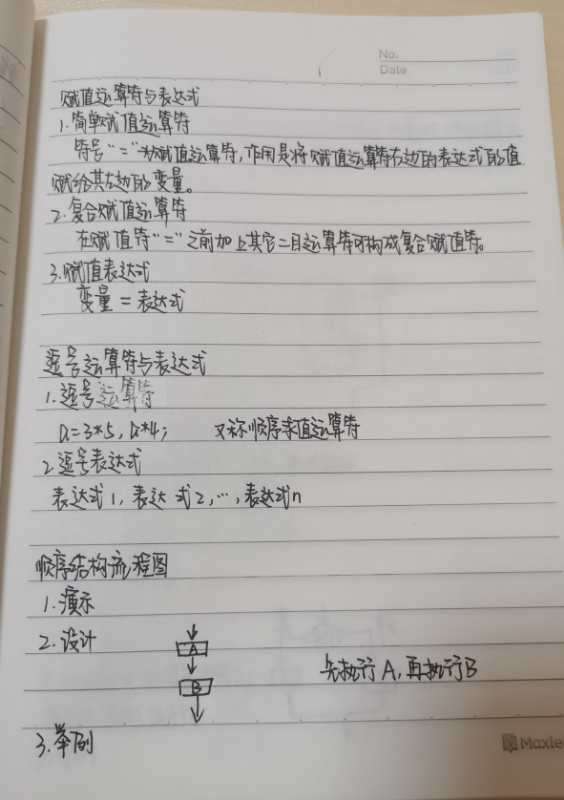 No.
Date
赋值运算符与表达式
1.简单赋值运算符
符号“=”为赋值运算符,作用是将赋值运算符右边的表达式的值
赋给其左边的变量。
2.复合赋值运算符
在赋值符“=”之前加上其它二目运算符可构成复合赋值符。
3.赋值表达式
变量=表达式
逗号运算符与表达式
1.逗号运算符
a=3*5,a*4; 又称顺序求值运算符
2.逗号表达式
表达式1,表达式2,…,表达式n
顺序结构流程图
1.演示
2.设计
A
先执行A,再执行B
B
3.举例